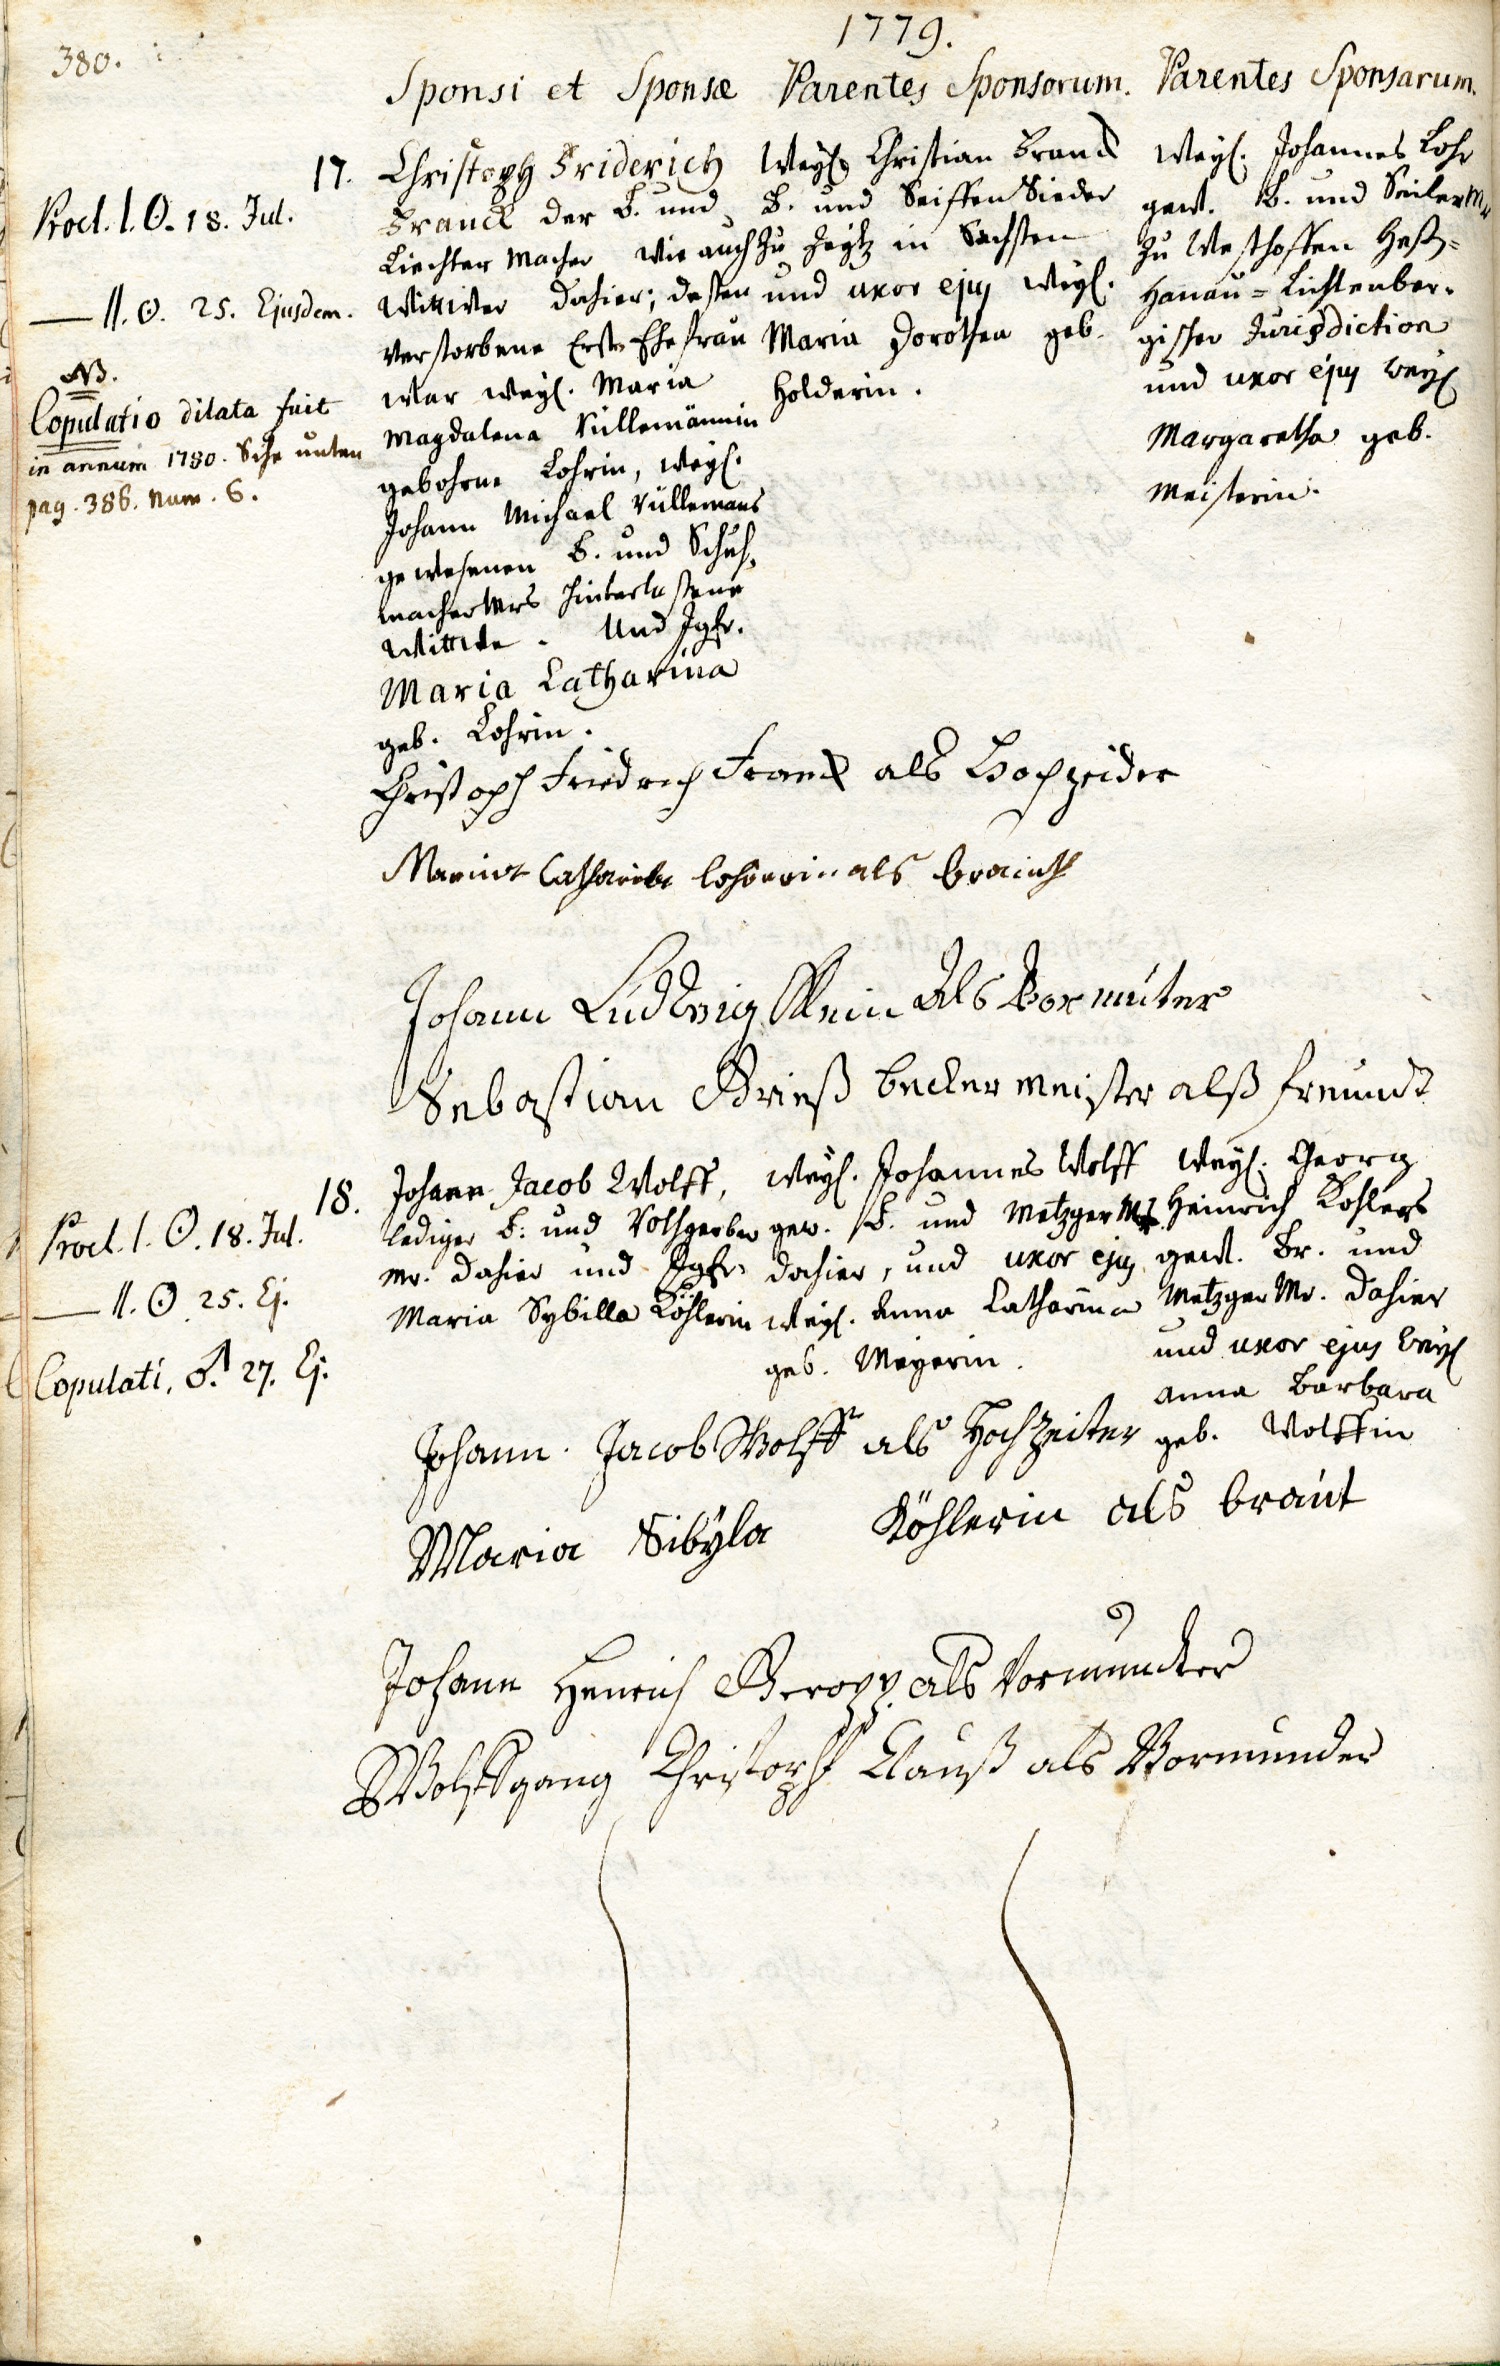 380.
1779.
Sponsi et Sponsæ
Parentes Sponsorum.
Parentes Sponsarum.
Procl. I. ☉. 18. Jul.
— II. ☉. 25. Ejusdem.
NB.
Copulatio dilata fuit
in annum 1780. Sehe unten
pag. 386. Num. 6.
17.
Christoph Friderich
Franck der B. und
Liechter Macher wie auch
Wittiber dahier; deßen
verstorbene Erste Ehefrau
war weyl. Maria
Magdalena Vüllemännin
gebohrne Lohrin, weyl.
Johann Michael Vüllemans
gewesenen B. und Schuh-
macher Mrs hinterlaßene
Wittibe. Und Jgfr.
Maria Catharina
geb. Lohrin.
Weyl. Christian Franck
B. und Seiffen Sieder
zu Zeytz in Sachsten
und uxor ejus weyl.
Maria Dorothea geb.
Holderin.
Weyl. Johannes Lohr
gew. B. und Seiler Mr
zu Westhoffen Heß-
Hanau-Lichtenber-
gischer Jurisdiction
und uxor ejus weyl
Margaretha geb.
Meisterin.
Christoph Friedrich Franck als Hochzeider
Maria Catharina lohrerin als braut
Johann Ludwig Klein Als Vormunter
Sebastian Grieß becker meister alß freundt
Procl. I. ☉. 18. Jul.
— II. ☉ 25. Ej.
Copulati, ♂. 27. Ej.
18.
Johann Jacob Wolff,
lediger B. und Rothgerber
Mr. dahier und Jgfr.
Maria Sybilla Köhlerin
weyl. Johannes Wolff
gew. B. und Metzger Mr
dahier, und uxor ejus
weyl. Anna Catharina
geb. Meyerin.
weyl. Georg
Heinrich Köhlers
gew. Br. und
Metzger Mr. dahier
und uxor ejus weyl
Anna Barbara
geb. Wolffin
Johann Jacob Wolff als Hochzeiter
Maria Sibÿla Köhlerin als braut
Johann Henrich als Vormundter
Wolffgang Christoph Clauß als Vormunder